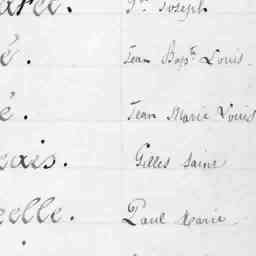 Joseph
é. Jean Bapte Louis
é. Jean Marie Louis
ais. Gilles Saint
elle. Paul Marie